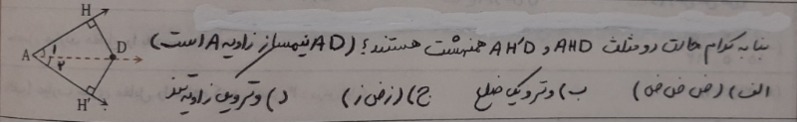 H
بنا به کدام حالت دو مثلث AHD و AH'D همنهشت هستند؟ (AD نیمساز زاویه A است)
A ۱ ۲ D
الف) (ض ض ض) ب) وتر و یک ضلع ج) (ز ض ز) د) وتر و یک زاویه تند
H'